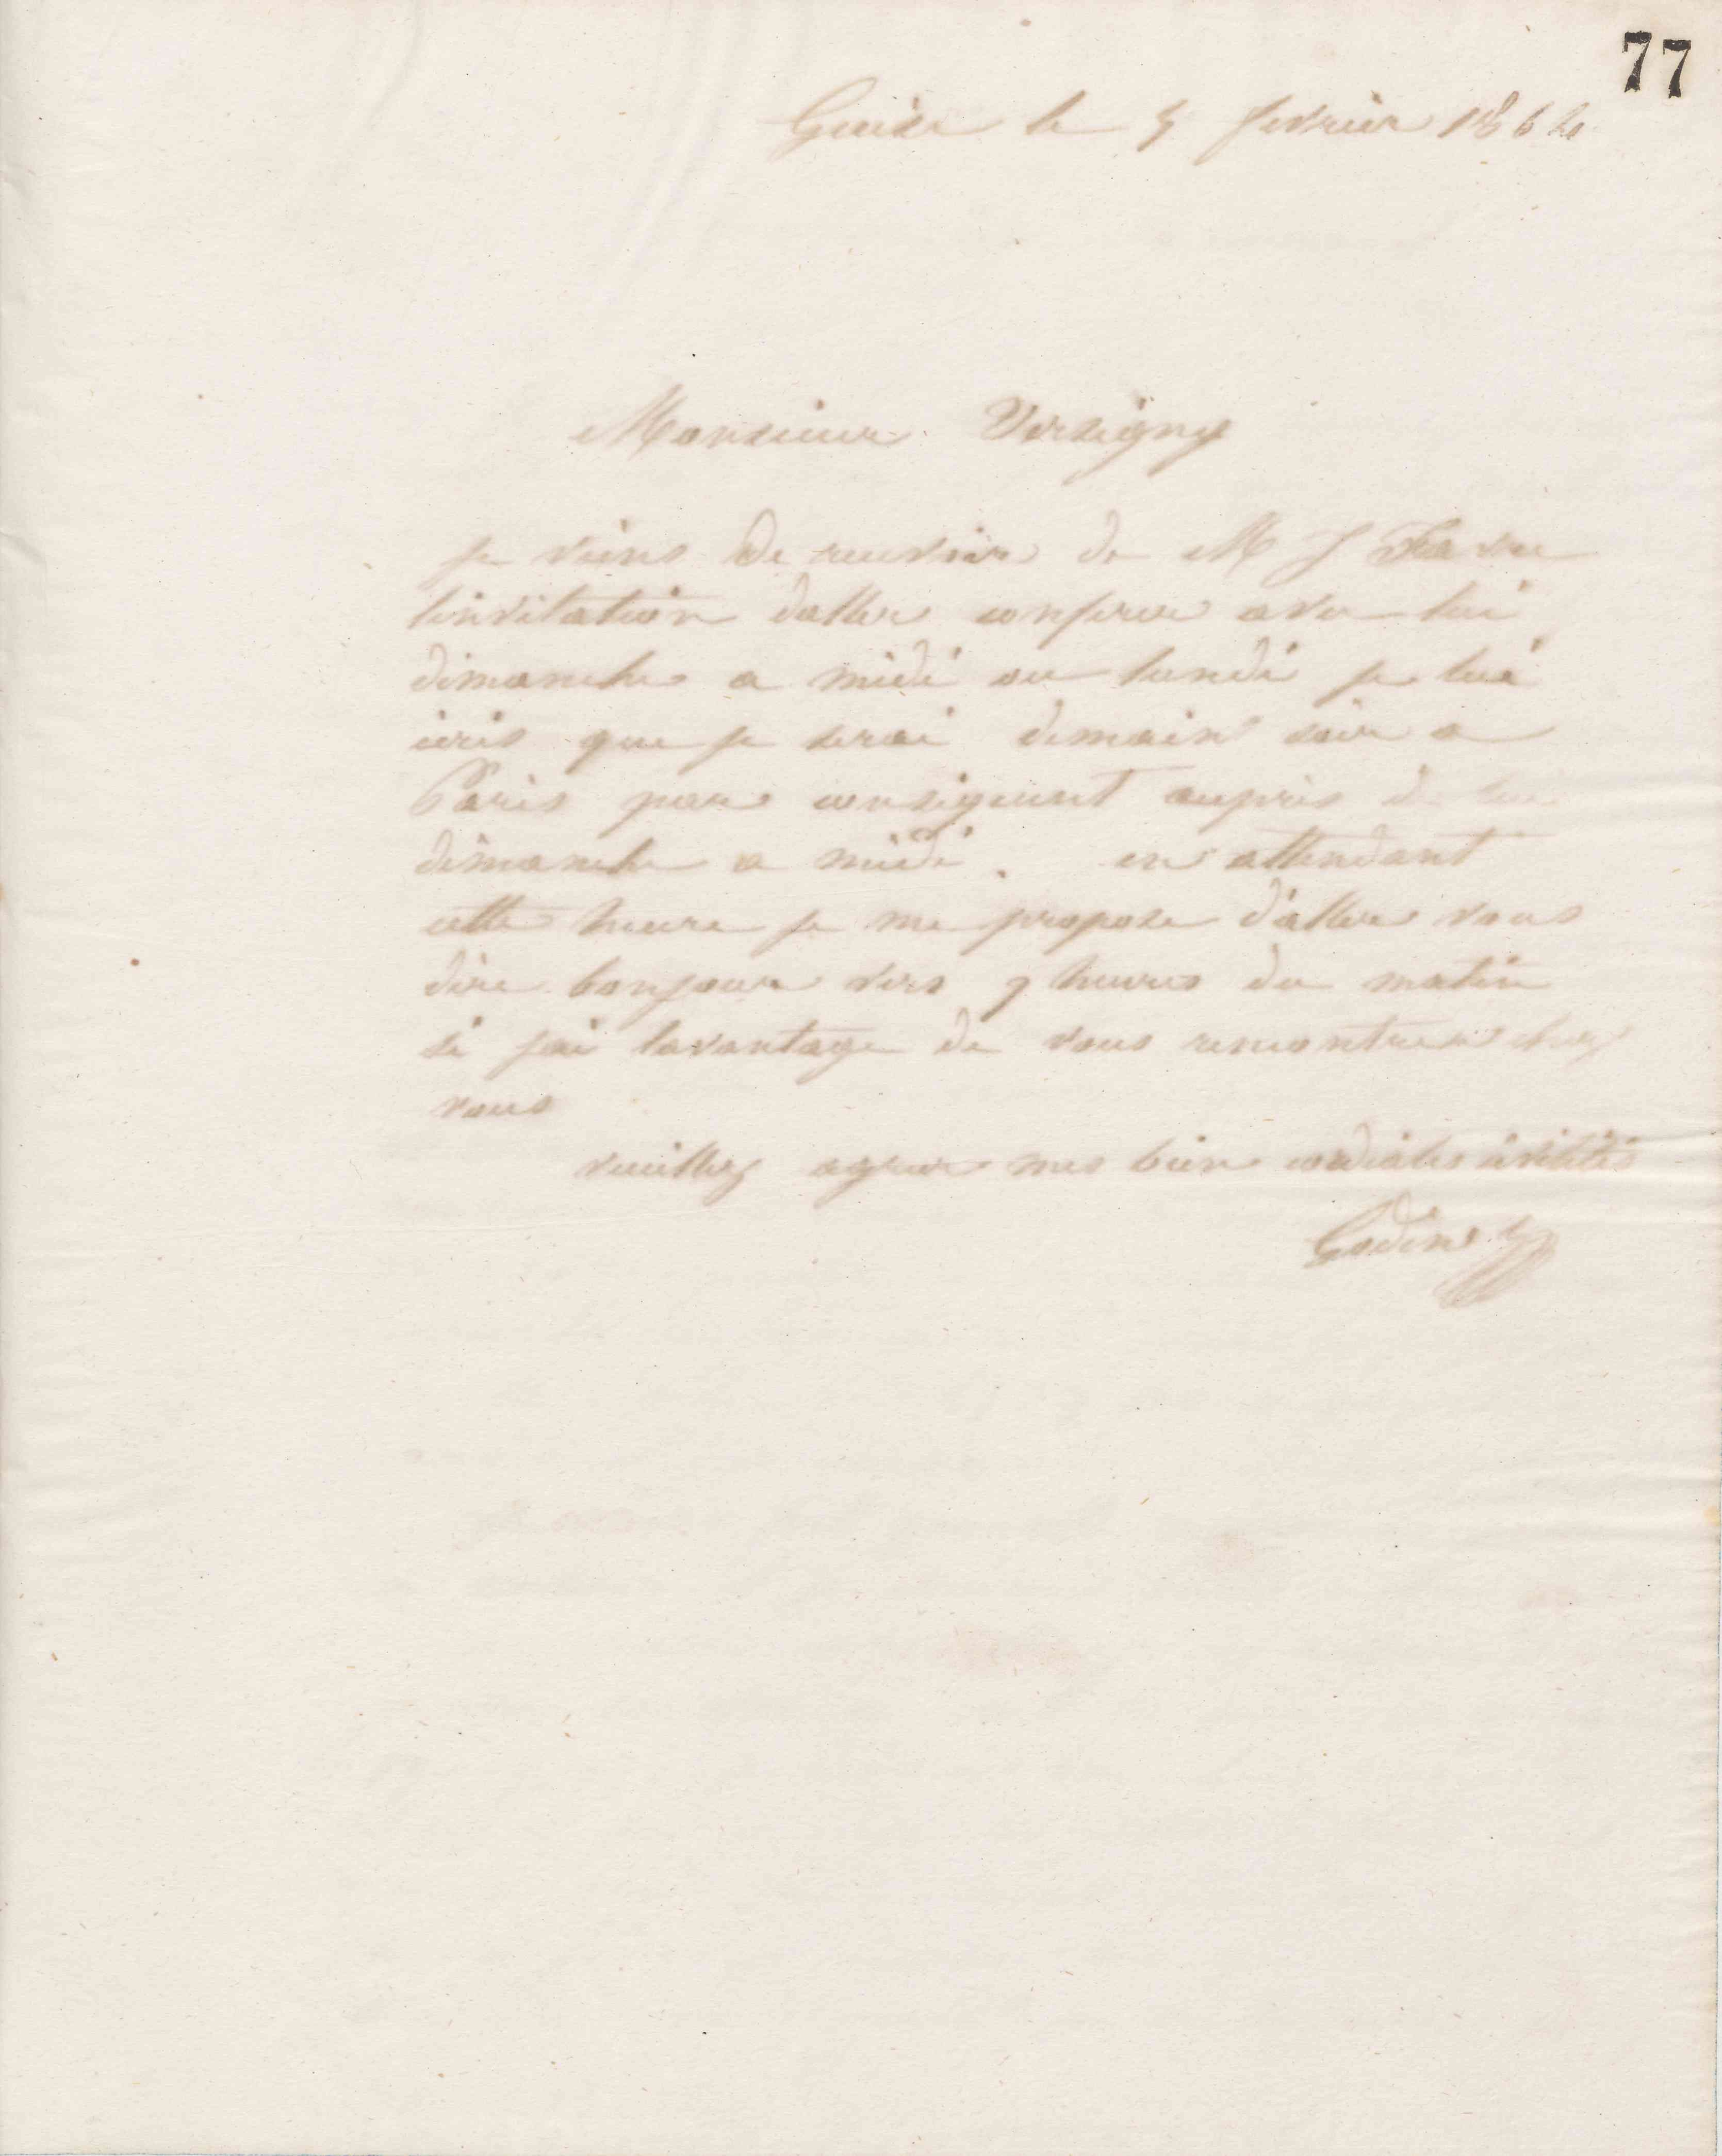 77
Guise le 5 fevrier 1864
Monsieur Versigny
je viens de recevoir de M J Favre
linvitation daller conferer avec lui
dimanche a midi ou lundi je lui
ecris que je serai demain soir a
Paris par consequent aupres de lui
dimanche a midi. en attendant
cette heure je me propose d'aller vous
dire bonjour vers 9 heures du matin
si jai lavantage de vous rencontrer chez
vous
veuillez agreer mes bien cordiales civilités
Godin